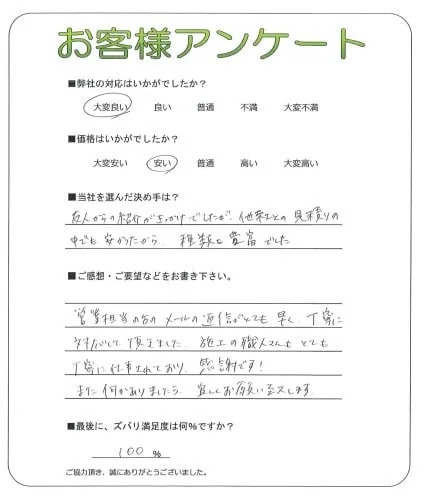 お客様アンケート
■弊社の対応はいかがでしたか？
大変良い 良い 普通 不満 大変不満
■価格はいかがでしたか？
大変安い 安い 普通 高い 大変高い
■当社を選んだ決め手は？
友人からの紹介がきっかけでしたが、他業者との見積りの
中でも安かったから。 種類も豊富でした
■ご感想・ご要望などをお書き下さい。
営業担当の方のメールの返信がとても早く、丁寧に
対応して頂きました。 施工の職人さんもとても
丁寧に仕事されており、感謝です!
また何かありましたら、宜しくお願い致します。
■最後に、ズバリ満足度は何％ですか？
100 %
ご協力頂き、誠にありがとうございました。